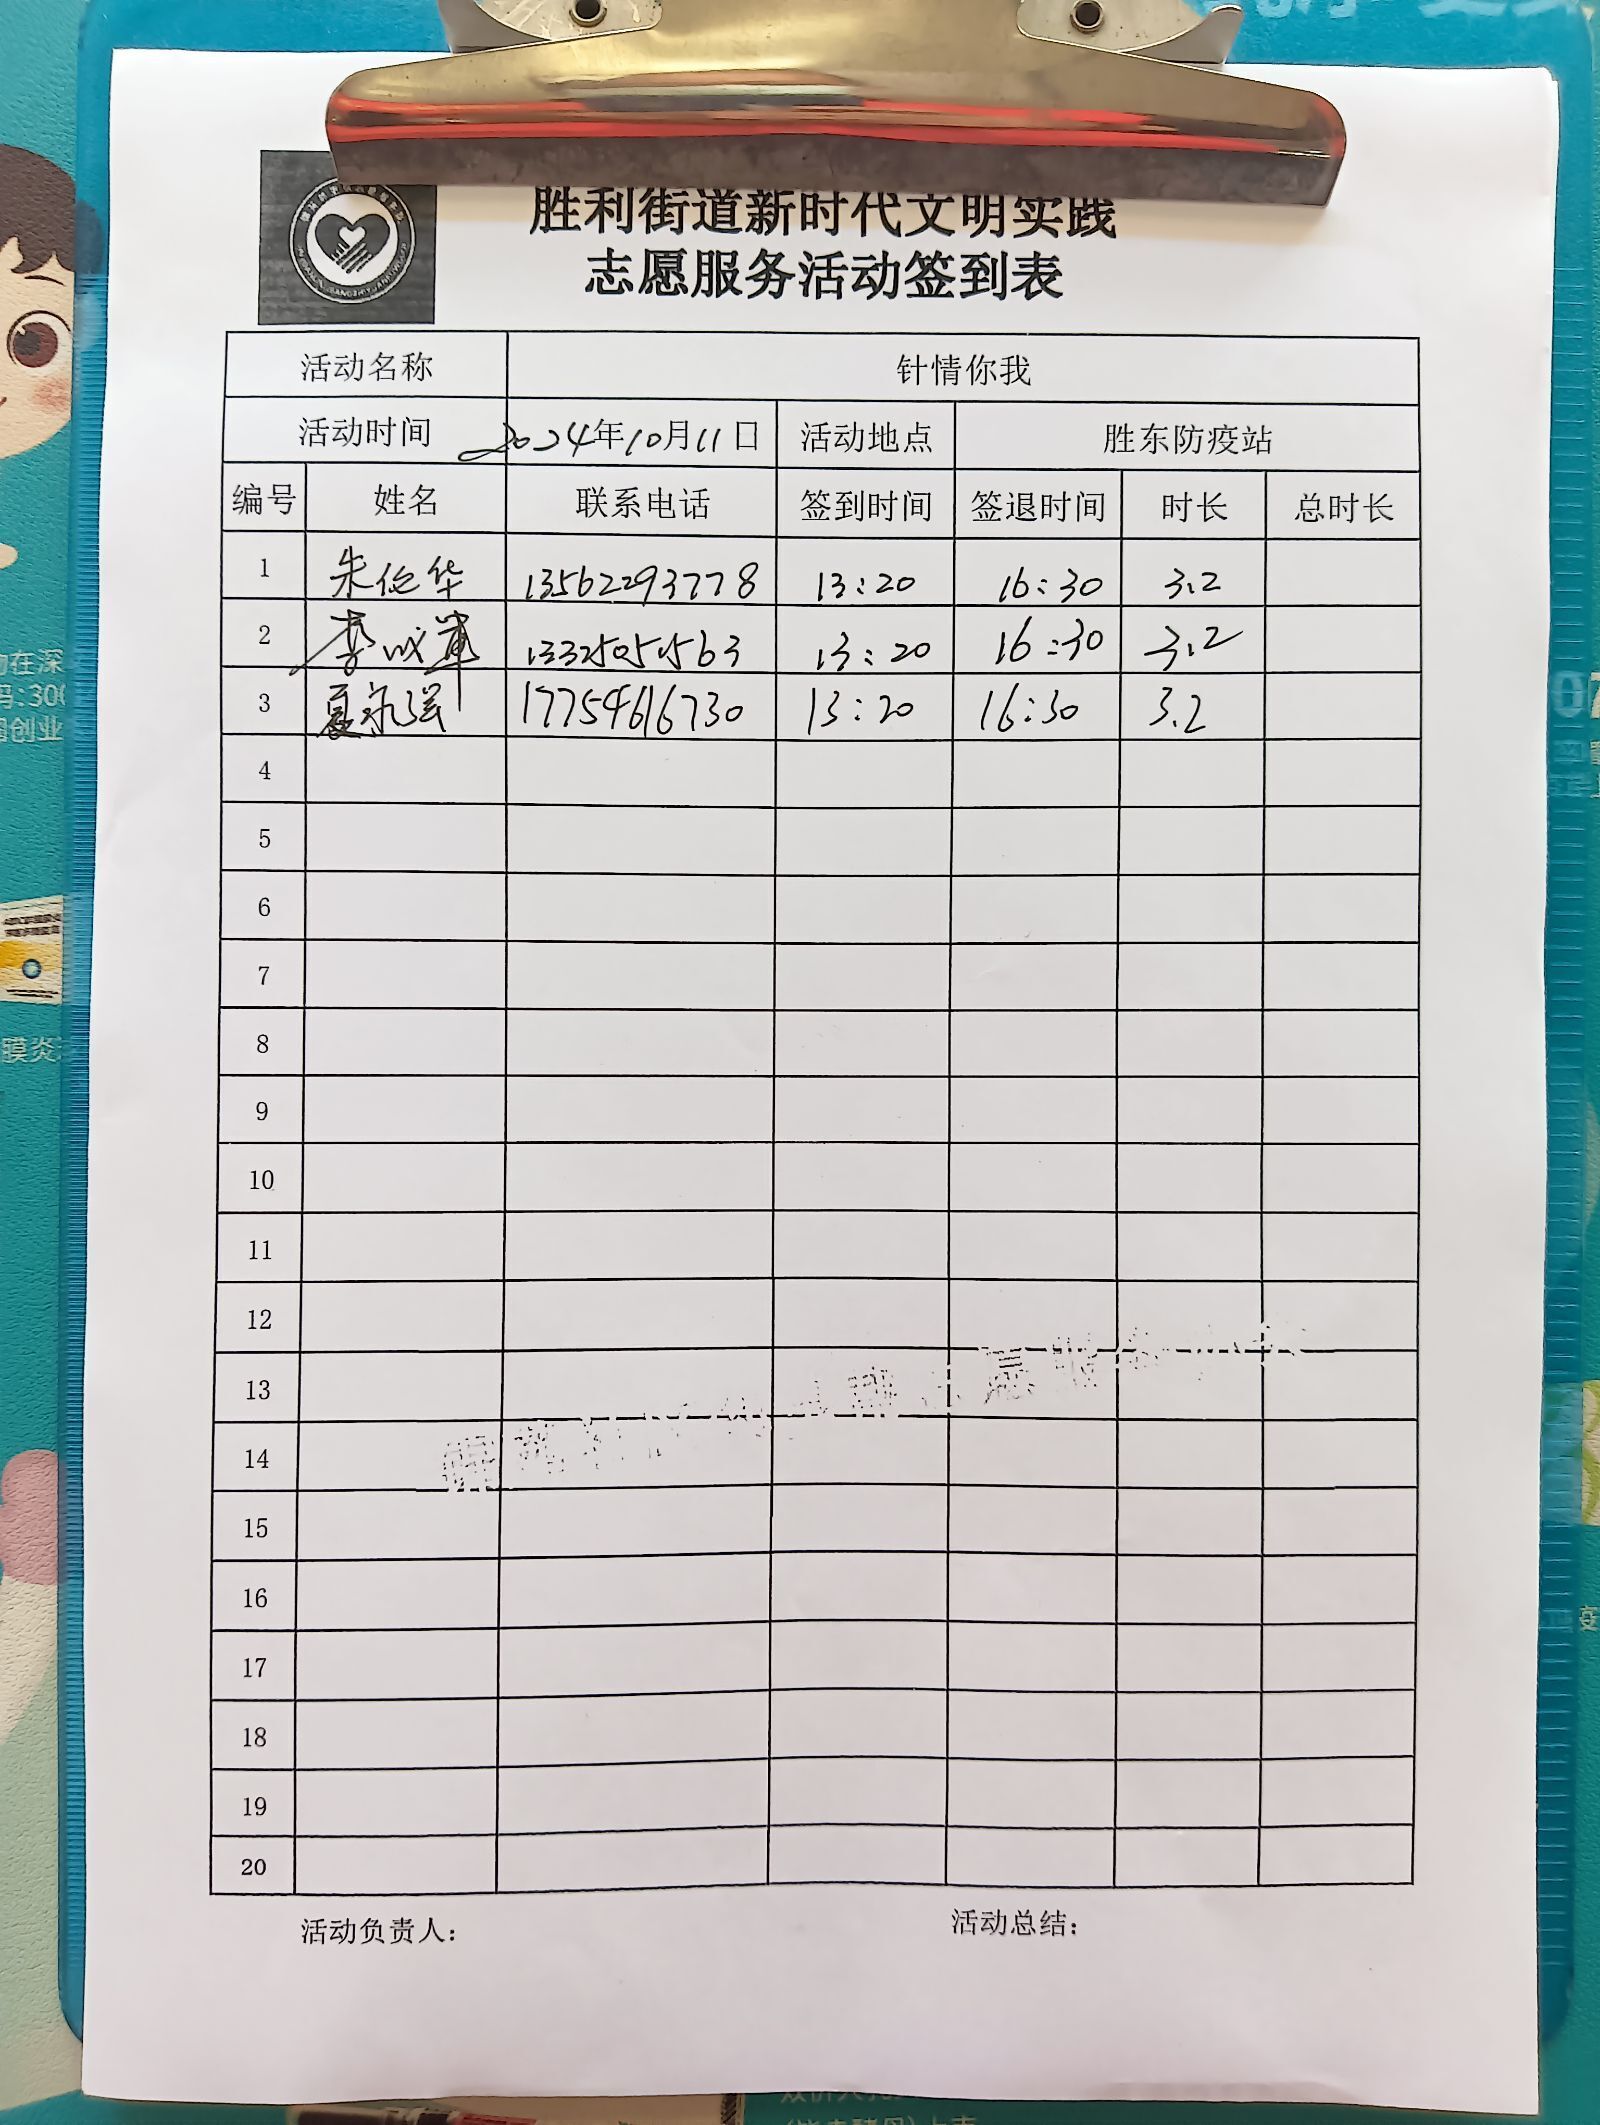 胜利街道新时代文明实践
志愿服务活动签到表
活动名称 针情你我
活动时间 2024年10月11日 活动地点 胜东防疫站
编号 姓名 联系电话 签到时间 签退时间 时长 总时长
1 朱伦华 13562293778 13:20 16:30 3.2
2 李成軍 13325051563 13:20 16:30 3.2
3 夏永强 17754616730 13:20 16:30 3.2
4
5
6
7
8
9
10
11
12
13
14
15
16
17
18
19
20
活动负责人: 活动总结: